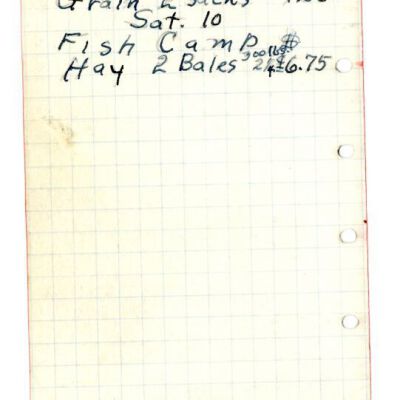 Grain 2 Sacks
Sat. 10
Fish Camp $
Hay 2 Bales 300 lbs 6.75